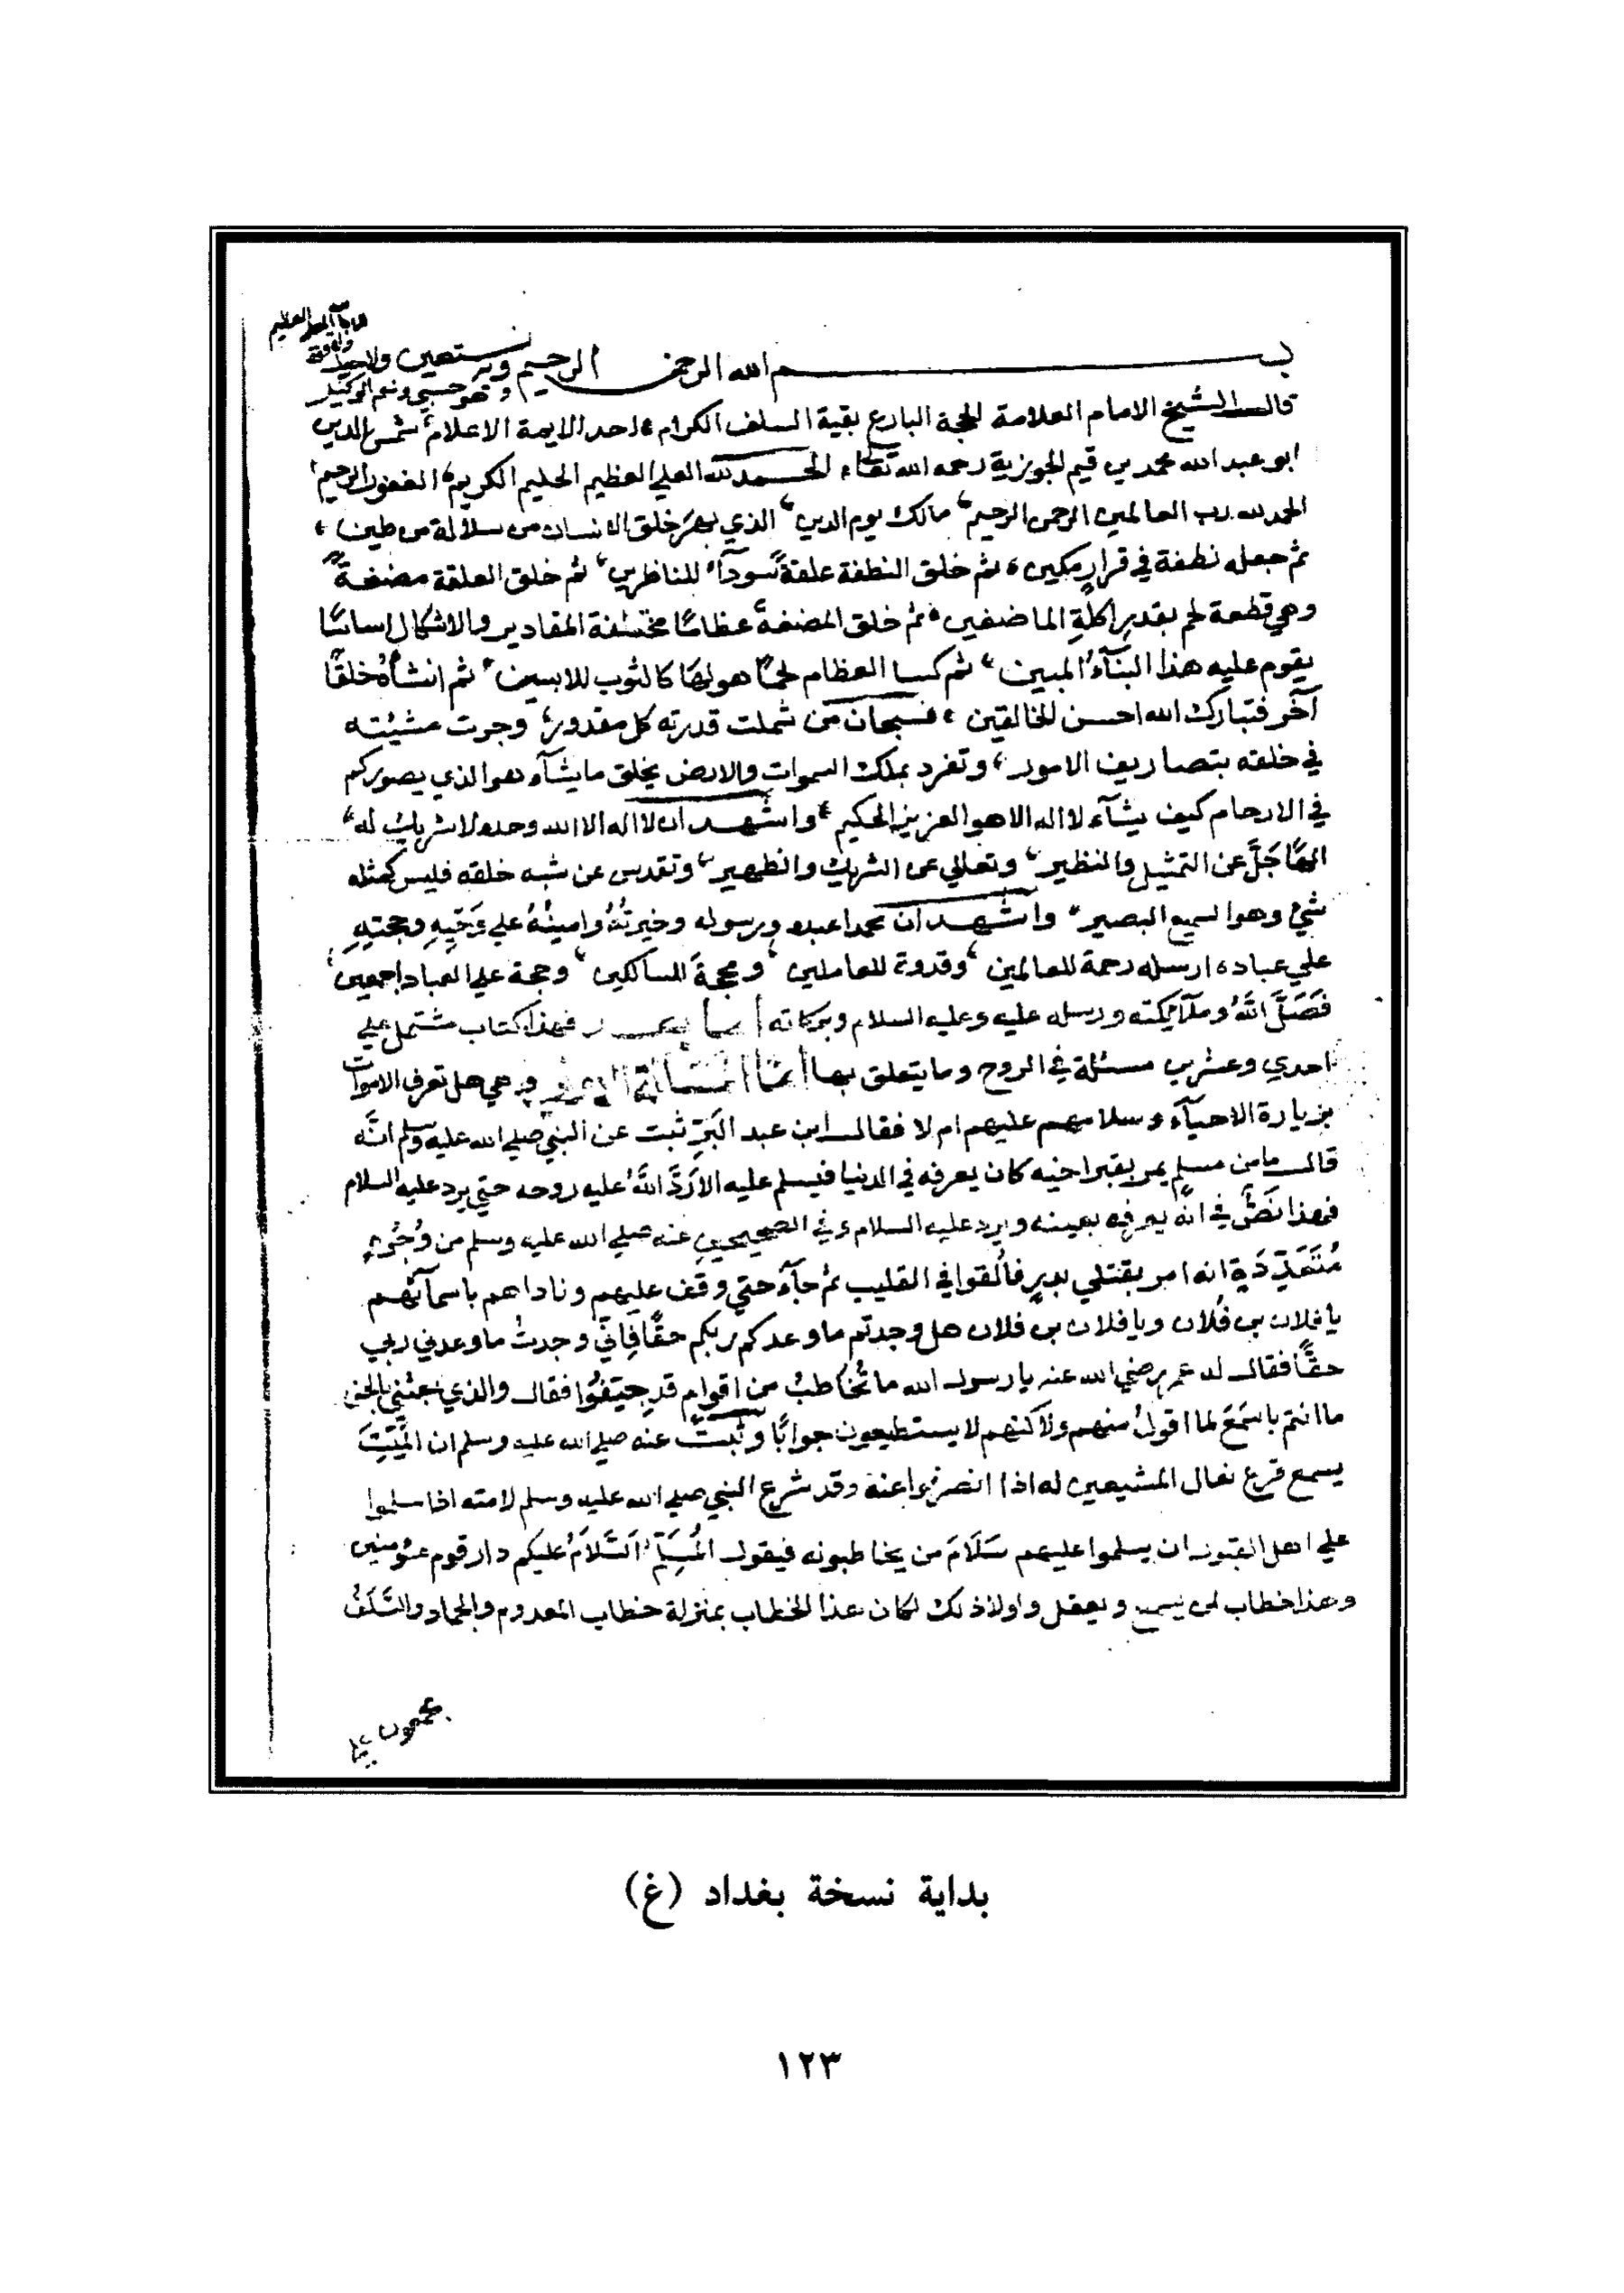 بسم الله الرحمن الرحيم وبه نستعين ولا حول ولا قوة الا بالله العلي العظيم
وهو حسبي ونعم الوكيل
قال الشيخ الامام العلامة الحجة البارع بقية السلف الكرام احد الايمة الاعلام شمس الدين
ابو عبد الله محمد بن قيم الجوزية رحمه الله تعالى الحمد لله العلي العظيم الحليم الكريم الغفور الرحيم
الحمد لله رب العالمين الرحمن الرحيم مالك يوم الدين الذي خلق الانسان من سلالة من طين
ثم جعله نطفة في قرارٍ مكين ثم خلق النطفة علقةً سودآء للناظرين ثم خلق العلقة مضغةً
وهي قطعة لحم بقدرِ اكلةِ الماضغين ثم خلق المضغة عظامًا مختلفة المقادير والاشكال اساسًا
يقوم عليه هذا البنآءُ المبين ثم كسا العظام لحمًا هو لها كالثوب للابسين ثم انشأهُ خلقًا
آخر فتبارك الله احسن الخالقين فسبحان من شملت قدرته كل مقدور وجرت مشيئته
في خلقه بتصاريف الامور وتفرد بملك السموات والارض يخلق ما يشآء هو الذي يصوركم
في الارحام كيف يشآء لا اله الا هو العزيز الحكيم واشهد ان لا اله الا الله وحده لا شريك له
الهًا جَلَّ عن التمثيل والنظير وتعالي عن الشريك والظهير وتقدس عن شبه خلقه فليس كمثله
شيئ وهو السميع البصير واشهد ان محمدا عبده ورسوله وخيرتُهُ وامينُهُ علي وَحْيِهِ وحجتِهِ
علي عباده ارسله رحمة للعالمين وقدوة للعاملين ومحجةً للسالكين وحجة علي العباد اجمعين
فَصَلَّى اللَّهُ وملآئكته ورسله عليه وعليه السلام وبركاته اما بعد فهذا كتاب مشتمل علي
احدي وعشرين مسئلة في الروح وما يتعلق بها اما المسألة وهي هل تعرف الاموات
بزيارة الاحيآء وسلامهم عليهم ام لا فقال ابن عبد البَرِّ ثبت عن النبي صلي الله عليه وسلم انَّه
قال ما من مسلمٍ يمر بقبر اخيه كان يعرفه في الدنيا فيسلم عليه الا رَدَّ اللَّهُ عليه روحه حتي يرد عليه السلام
فهذا نَصٌّ في انَّه يعرفه بعينه ويرد عليه السلام وفي الصحيحين عنه صلي الله عليه وسلم من وُجُوهٍ
مُتَعَدِّدَةٍ انه امر بقتلي بدرٍ فأُلقوا في القليب ثم جآء حتي وقف عليهم وناداهم باسمآئهم
يا فلان بن فُلان ويا فلان بن فلان هل وجدتم ما وعدكم ربكم حقًّا فاني وجدتُ ما وعدني ربي
حقًّا فقال له عمر رضي الله عنه يا رسول الله ما تُخاطبُ من اقوامٍ قد جيفُوا فقال والذي بعثني بالحق
ما انتم باسمَعَ لما اقولُ منهم ولاكنهم لا يستطيعون جوابًا وثبتَ عنه صلي الله عليه وسلم ان المَيِّتَ
يسمع قرع نعال المشيعين له اذا انصرفوا عنه وقد شرع النبي صلي الله عليه وسلم لامته اذا سلموا
علي اهل القبور ان يسلموا عليهم سَلَامَ من يخاطبونه فيقول المُسَلِّمُ السَّلَامُ عليكم دار قوم مؤمنين
وهذا خطاب لمن يسمع ويعقل ولولا ذلك لكان هذا الخطاب بمنزلة خطاب المعدوم والجماد والسَّلَفُ
بداية نسخة بغداد (غ)
١٢٣